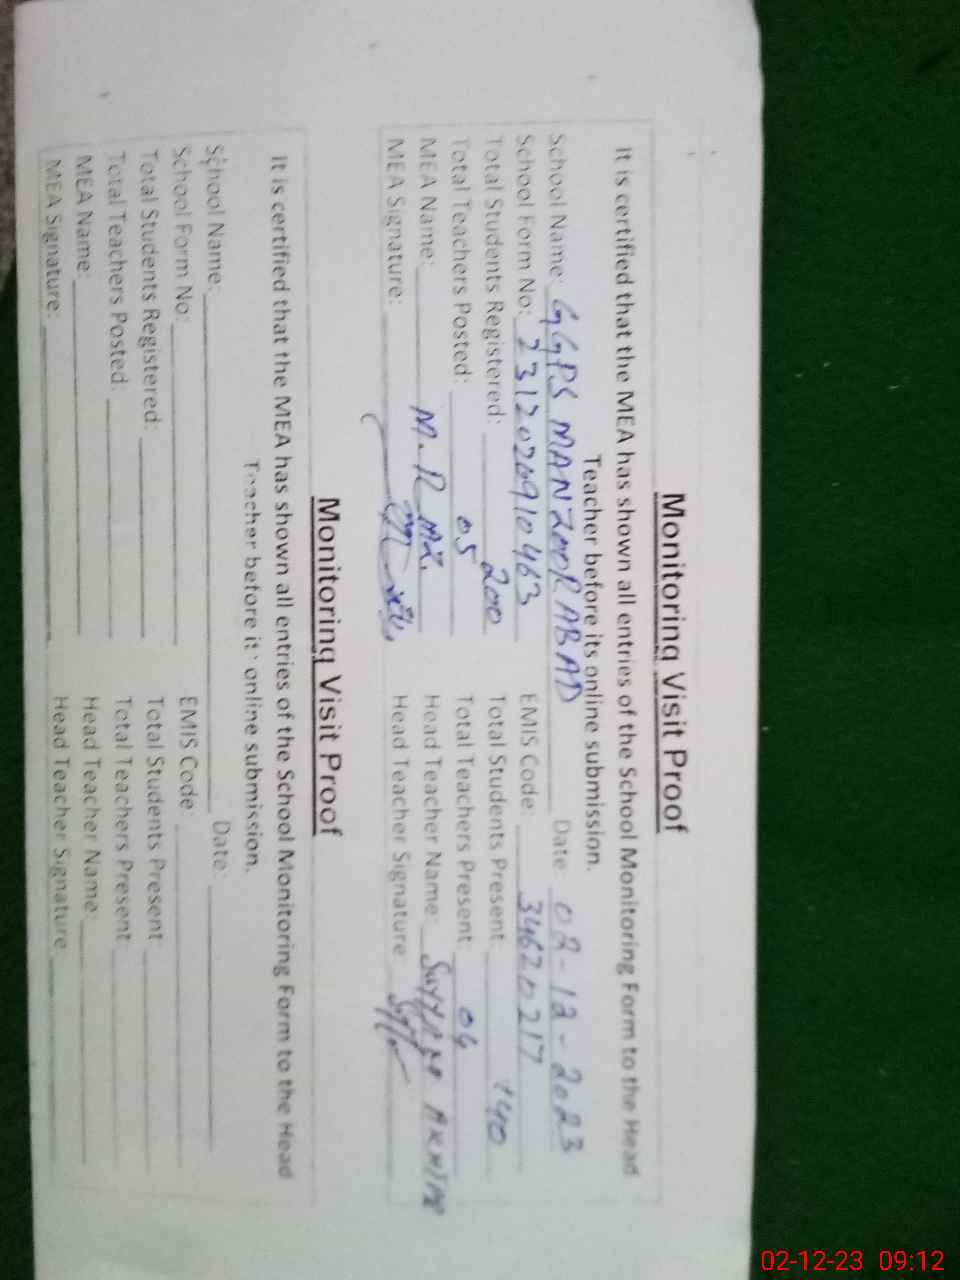 Monitoring Visit Proof
It is certified that the MEA has shown all entries of the School Monitoring Form to the Head
Teacher before its online submission.
School Name: GGPS MANZOOR ABAD Date: 02-12-2023
School Form No: 231202910463 EMIS Code: 34620217
Total Students Registered: 200 Total Students Present 140
Total Teachers Posted: 05 Total Teachers Present 04
MEA Name: M. Riaz. Head Teacher Name: AKHTAR
MEA Signature: Head Teacher Signature
Monitoring Visit Proof
It is certified that the MEA has shown all entries of the School Monitoring Form to the Head
Teacher before its online submission.
School Name: Date:
School Form No: EMIS Code:
Total Students Registered: Total Students Present
Total Teachers Posted: Total Teachers Present
MEA Name: Head Teacher Name:
MEA Signature: Head Teacher Signature
02-12-23 09:12